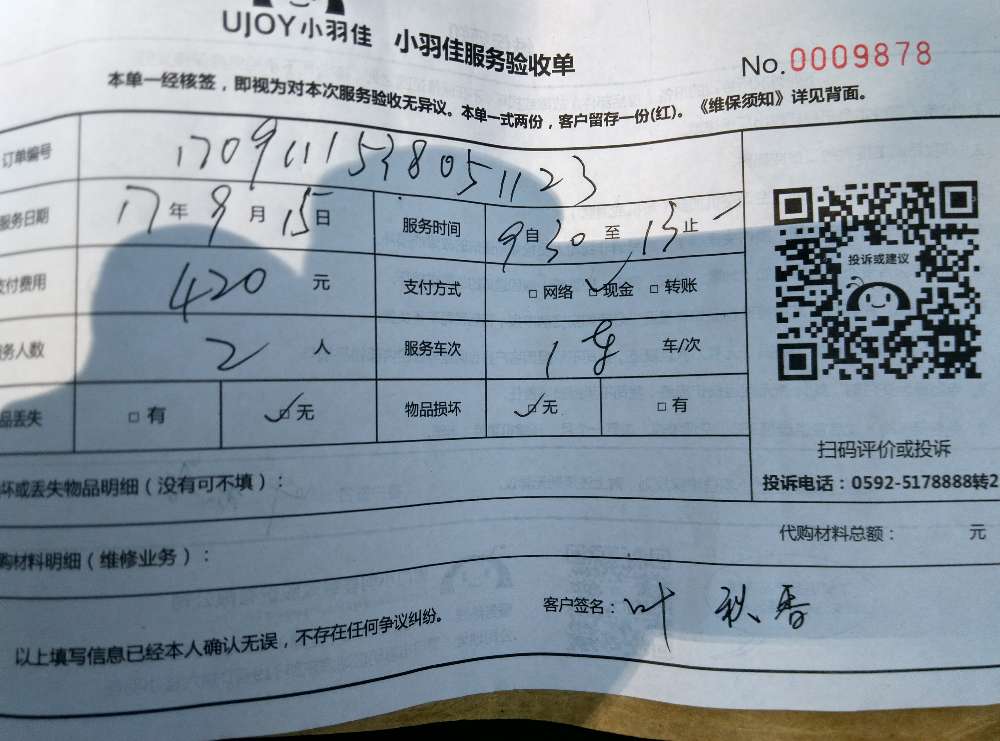 UJOY小羽佳 小羽佳服务验收单 No.0009878
本单一经核签，即视为对本次服务验收无异议。本单一式两份，客户留存一份(红)。《维保须知》详见背面。
订单编号 1709111538051123
服务日期 17年9月15日 服务时间 9自30至13止
支付费用 420元 支付方式 □网络 ☑现金 □转账
务人数 2人 服务车次 1 车/次
品丢失 □有 ☑无 物品损坏 ☑无 □有
投诉或建议
扫码评价或投诉
投诉电话：0592-5178888转2
坏或丢失物品明细（没有可不填）：
代购材料总额： 元
购材料明细（维修业务）：
以上填写信息已经本人确认无误，不存在任何争议纠纷。
客户签名：叶秋香